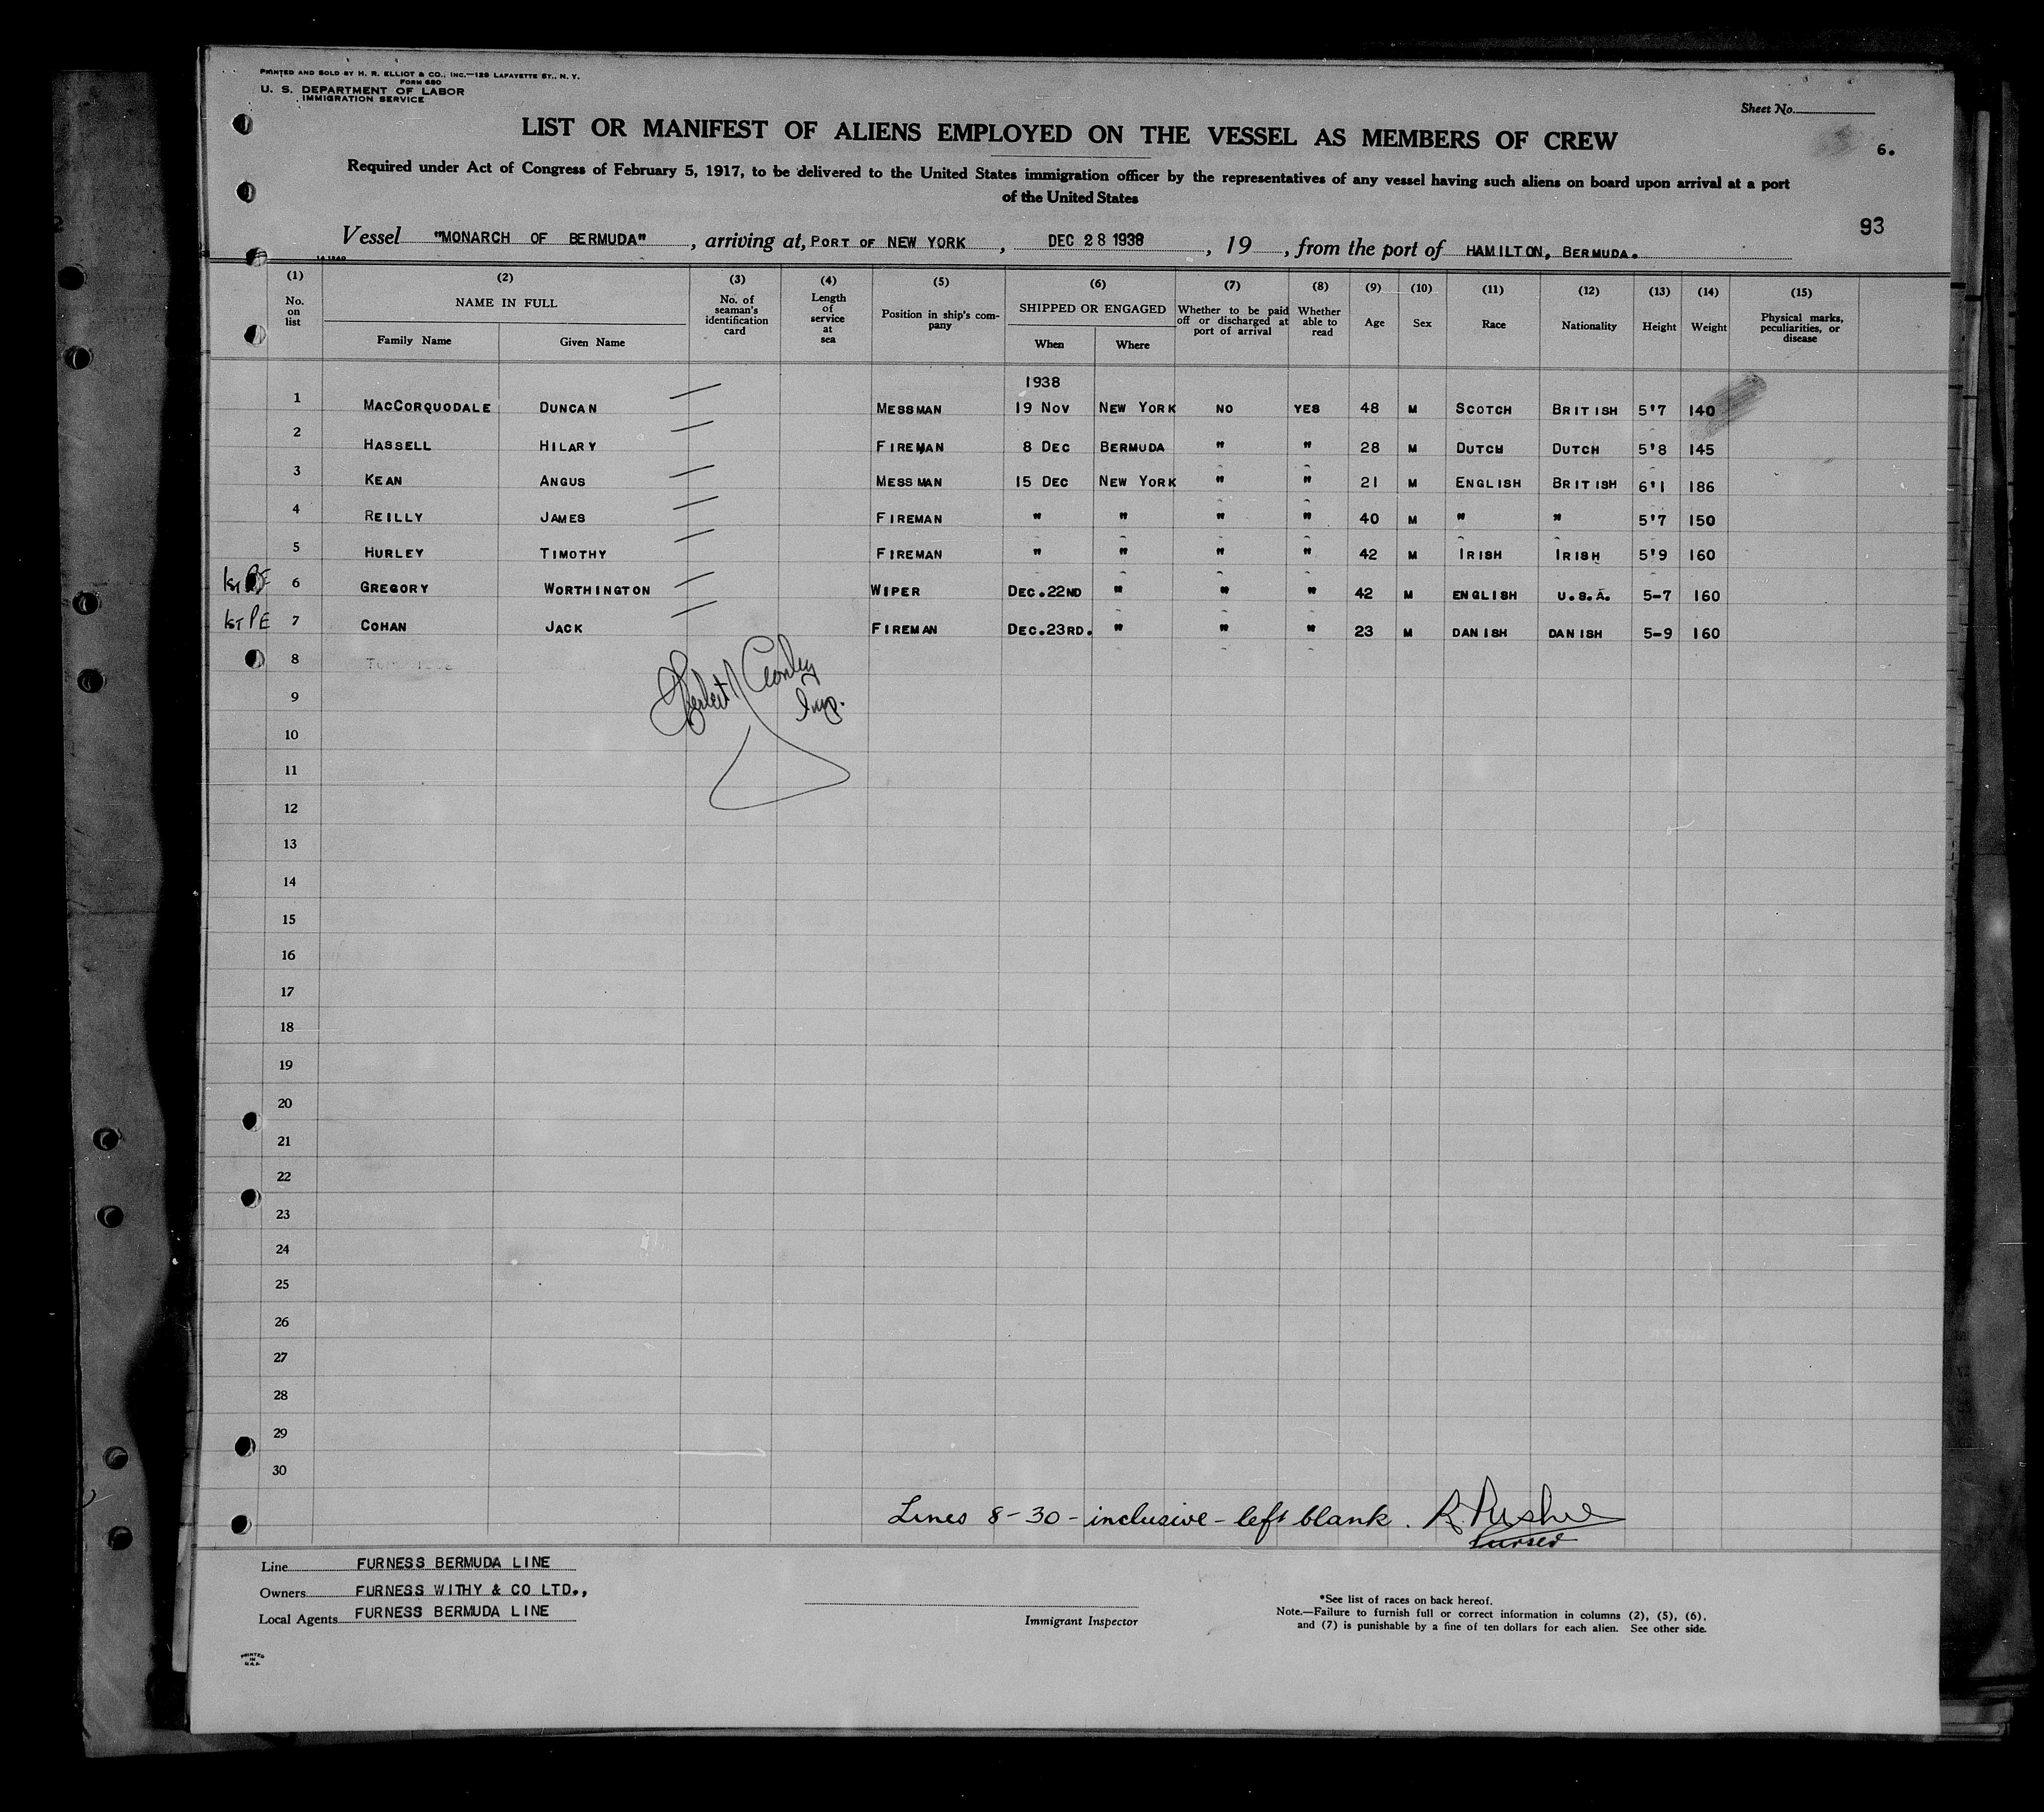 PRINTED AND SOLD BY H. R. ELLIOT & CO., INC.—129 LAFAYETTE ST., N. Y.
FORM 680
U. S. DEPARTMENT OF LABOR
IMMIGRATION SERVICE
Sheet No.
LIST OR MANIFEST OF ALIENS EMPLOYED ON THE VESSEL AS MEMBERS OF CREW
6.
Required under Act of Congress of February 5, 1917, to be delivered to the United States immigration officer by the representatives of any vessel having such aliens on board upon arrival at a port
of the United States
93
Vessel "MONARCH OF BERMUDA", arriving at, PORT OF NEW YORK, DEC 28 1938, 19, from the port of HAMILTON, BERMUDA.
(1) (2) (3) (4) (5) (6) (7) (8) (9) (10) (11) (12) (13) (14) (15)
No. on list NAME IN FULL Family Name Given Name No. of seaman's identification card Length of service at sea Position in ship's company SHIPPED OR ENGAGED When Where Whether to be paid off or discharged at port of arrival Whether able to read Age Sex Race Nationality Height Weight Physical marks, peculiarities, or disease
1938
1 MACCORQUODALE DUNCAN MESSMAN 19 NOV NEW YORK NO YES 48 M SCOTCH BRITISH 5'7 140
2 HASSELL HILARY FIREMAN 8 DEC BERMUDA " " 28 M DUTCH DUTCH 5'8 145
3 KEAN ANGUS MESSMAN 15 DEC NEW YORK " " 21 M ENGLISH BRITISH 6'1 186
4 REILLY JAMES FIREMAN " " " " 40 M " " 5'7 150
5 HURLEY TIMOTHY FIREMAN " " " " 42 M IRISH IRISH 5'9 160
6 GREGORY WORTHINGTON WIPER DEC.22ND " " " 42 M ENGLISH U.S.A. 5-7 160
1st PE 7 COHAN JACK FIREMAN DEC.23RD. " " " 23 M DANISH DANISH 5-9 160
8
9
10
11
12
13
14
15
16
17
18
19
20
21
22
23
24
25
26
27
28
29
30
Lines 8-30-inclusive-left blank.
Purser
Line FURNESS BERMUDA LINE
Owners FURNESS WITHY & CO LTD.,
Local Agents FURNESS BERMUDA LINE
Immigrant Inspector
*See list of races on back hereof.
Note.—Failure to furnish full or correct information in columns (2), (5), (6),
and (7) is punishable by a fine of ten dollars for each alien. See other side.
PRINTED
IN
U.S.A.